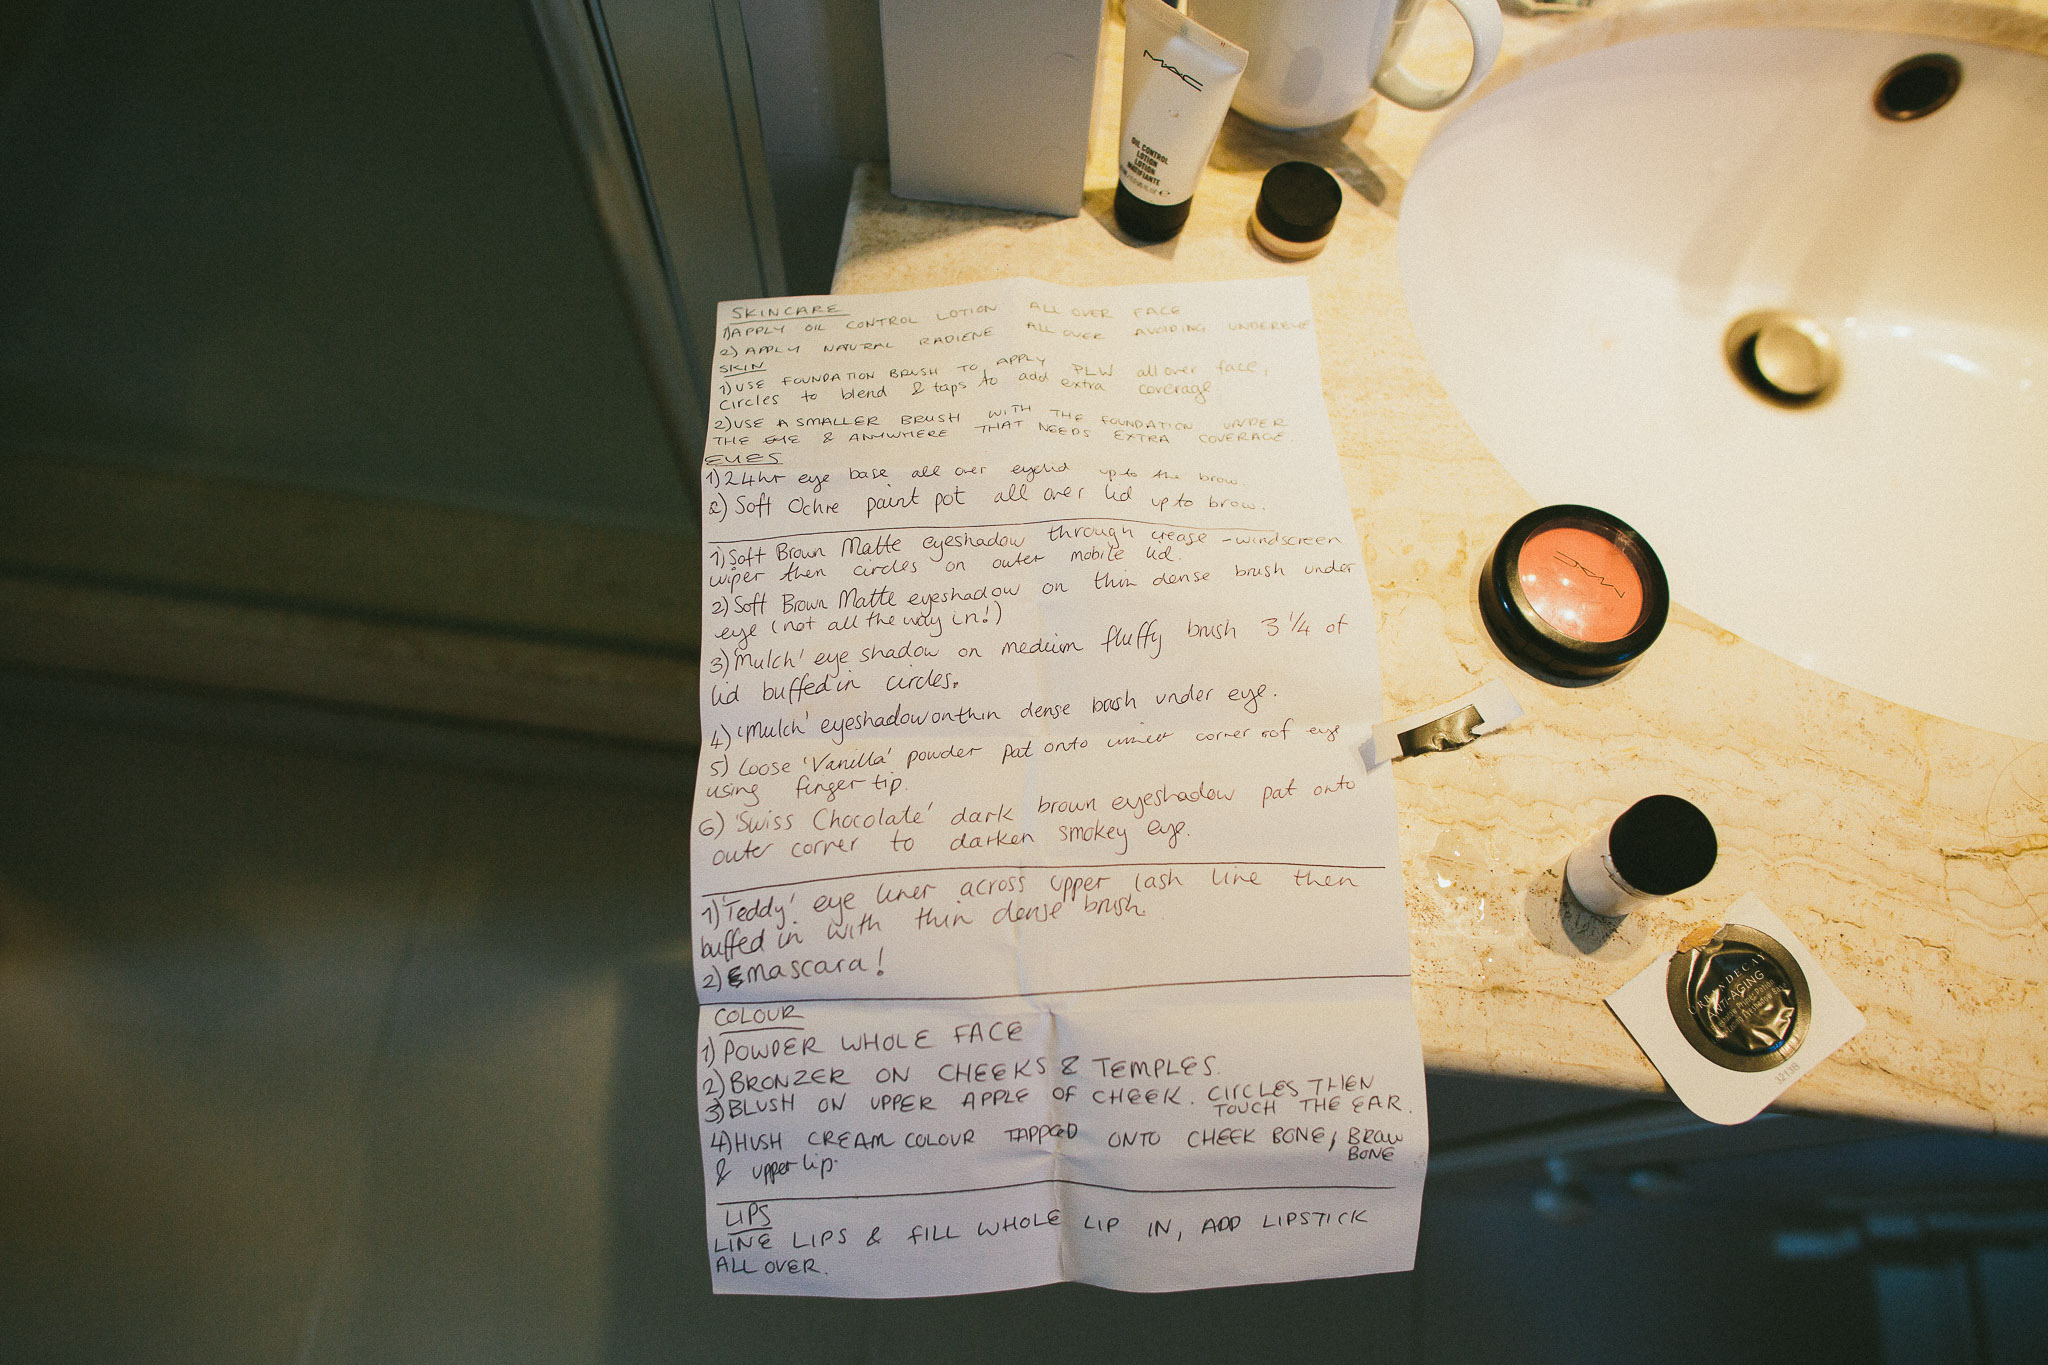 MAC
OIL CONTROL
LOTION
LOTION
MATIFIANTE
SKINCARE
1) APPLY OIL CONTROL LOTION ALL OVER FACE
2) APPLY NATURAL RADIENE ALL OVER AVOIDING UNDEREYE
SKIN
1) USE FOUNDATION BRUSH TO APPLY PLW all over face,
circles to blend & taps to add extra coverage
2) USE A SMALLER BRUSH WITH THE FOUNDATION UNDER
THE EYE & ANYWHERE THAT NEEDS EXTRA COVERAGE.
EYES
1) 24hr eye base all over eyelid up to the brow.
2) Soft Ochre paint pot all over lid up to brow.
1) Soft Brown Matte eyeshadow through crease - windscreen
wiper then circles on outer mobile lid.
2) Soft Brown Matte eyeshadow on thin dense brush under
eye (not all the way in!)
3) 'Mulch' eye shadow on medium fluffy brush 3 1/4 of
lid buffed in circles.
4) 'Mulch' eyeshadow on thin dense bash under eye.
5) Loose 'Vanilla' powder pat onto inner corner of eye
using finger tip.
6) 'Swiss Chocolate' dark brown eyeshadow pat onto
outer corner to darken smokey eye.
1) 'Teddy' eye liner across upper lash line then
buffed in with thin dense brush.
2) mascara!
COLOUR
1) POWDER WHOLE FACE
2) BRONZER ON CHEEKS & TEMPLES.
3) BLUSH ON UPPER APPLE OF CHEEK. CIRCLES THEN
TOUCH THE EAR.
4) HUSH CREAM COLOUR TAPPED ONTO CHEEK BONE, BROW
BONE
& upper lip.
LIPS
LINE LIPS & FILL WHOLE LIP IN, ADD LIPSTICK
ALL OVER.
MAC
URBAN DECAY
ANTI-AGING
12138